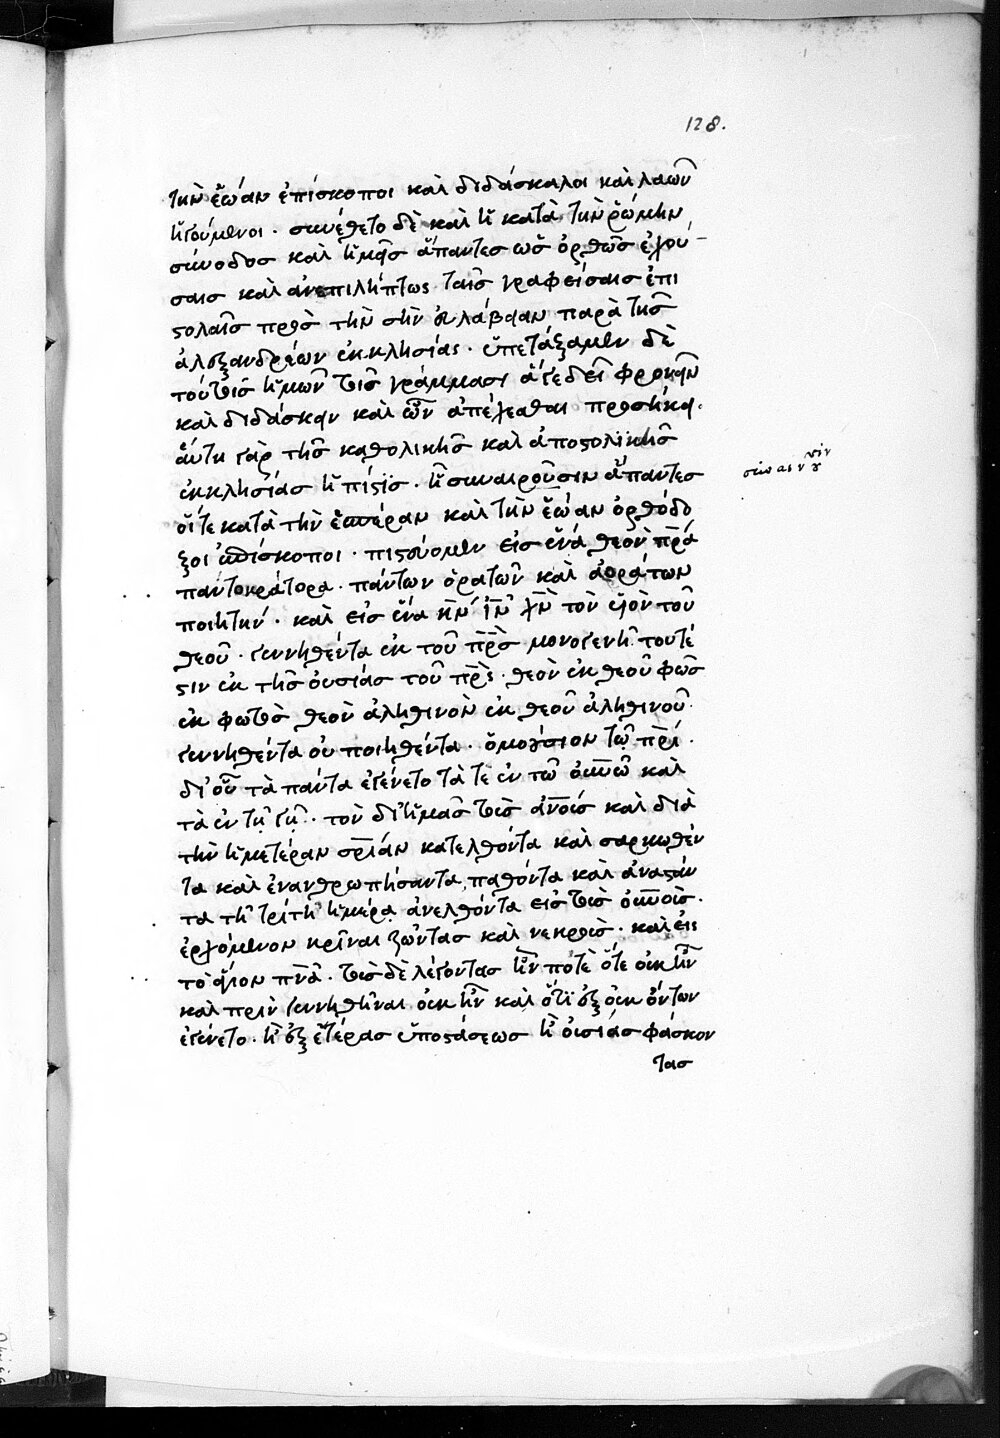 128.
τὴν ἑῴαν ἐπίσκοποι καὶ διδάσκαλοι καὶ λαῶν
ἡγούμενοι · συνέθετο δὲ καὶ ἡ κατὰ τὴν ῥώμην
σύνοδος καὶ ἡμεῖς ἅπαντες ὡς ὀρθῶς ἐχού-
σαις καὶ ἀνεπιλήπτως ταῖς γραφείσαις ἐπι
στολαῖς πρὸς τὴν σὴν εὐλάβειαν παρὰ τῆς
ἀλεξανδρέων ἐκκλησίας · ὑπετάξαμεν δὲ
τούτοις ἡμῶν τοῖς γράμμασι ἅ γε δεῖ φρονεῖν
καὶ διδάσκειν καὶ ὧν ἀπέχεσθαι προσήκει ·
αὕτη γὰρ τῆς καθολικῆς καὶ ἀποστολικῆς
ἐκκλησίας ἡ πίστις · ἧ συναιροῦσιν ἅπαντες
συναινοῦ
σιν
οἵ τε κατὰ τὴν ἑσπέραν καὶ τὴν ἑῴαν ὀρθόδο
ξοι ἐπίσκοποι · πιστεύομεν εἰς ἕνα θεὸν πρα
παντοκράτορα · πάντων ὁρατῶν καὶ ἀοράτων
ποιητήν · καὶ εἰς ἕνα κν ιν χν τὸν υἱὸν τοῦ
θεοῦ · γεννηθέντα ἐκ τοῦ πρς μονογενῆ · τουτέ
στιν ἐκ τῆς οὐσίας τοῦ πρς · θεὸν ἐκ θεοῦ φῶς
ἐκ φωτὸς θεὸν ἀληθινὸν ἐκ θεοῦ ἀληθινοῦ ·
γεννηθέντα οὐ ποιηθέντα · ὁμοούσιον τῷ πρι ·
δι' οὗ τὰ πάντα ἐγένετο τά τε ἐν τῷ οὐνῷ καὶ
τὰ ἐν τῇ γῇ · τὸν δι' ἡμᾶς τοὺς ἀνους καὶ διὰ
τὴν ἡμετέραν σριαν κατελθόντα καὶ σαρκωθέν
τα καὶ ἐνανθρωπήσαντα, παθόντα καὶ ἀναστάν
τα τῇ τρίτῃ ἡμέρᾳ ἀνελθόντα εἰς τοὺς οὐνούς ·
ἐρχόμενον κρῖναι ζῶντας καὶ νεκρούς · καὶ εἰς
τὸ ἅγιον πνα · τοὺς δὲ λέγοντας ἦν ποτὲ ὅτε οὐκ ἦν
καὶ πρὶν γεννηθῆναι οὐκ ἦν καὶ ὅτι ἐξ οὐκ ὄντων
ἐγένετο · ἢ ἐξ ἑτέρας ὑποστάσεως ἢ οὐσίας φάσκον
τας